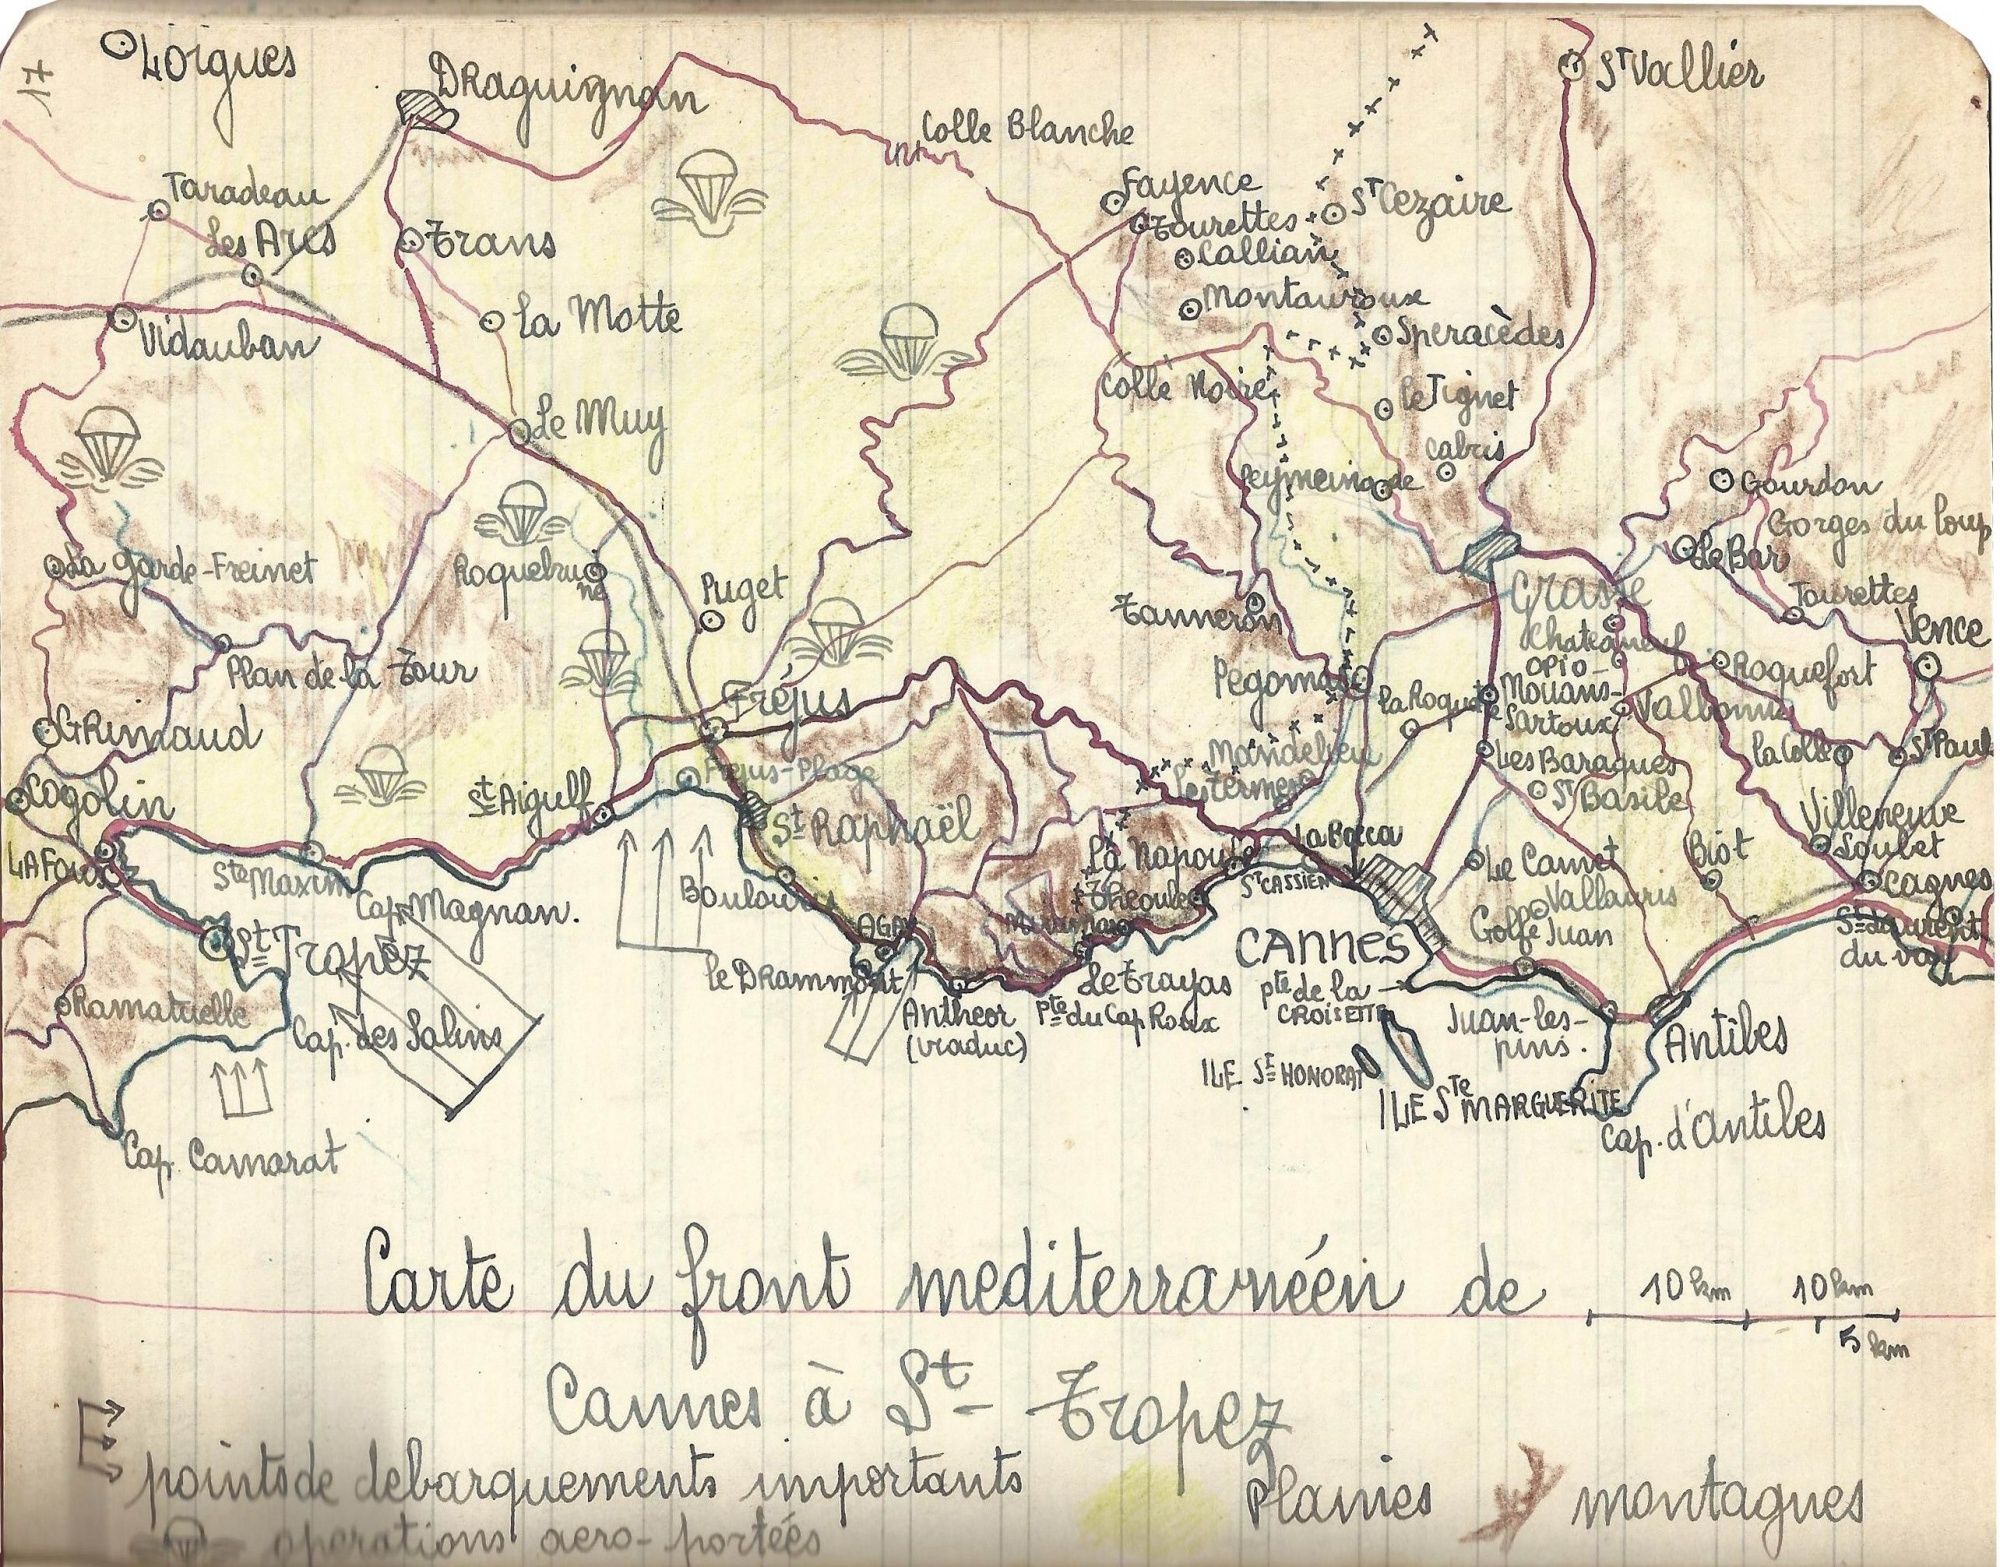 17
Lorgues
Draguignan
St Vallier
Colle Blanche
Taradeau
Les Arcs
Trans
Fayence
Tourettes
St Cezaire
Callian
Montauroux
La Motte
Vidauban
Speracèdes
Colle Noire
le Tignet
Le Muy
Cabris
Peymeinade
Gourdon
Gorges du Loup
Le Bar
La Garde-Freinet
Roquebru
ne
Puget
Tanneron
Grasse
Tourettes
Vence
Chateauneuf
Opio
Plan de la Tour
Pegomas
la Roquette
Mouans-
Sartoux
Roquefort
Valbonne
Grimaud
Fréjus
Mandelieu
les Termes
Les Baraques
la Colle
St Paul
Cogolin
St Aigulf
Frejus-Plage
St Basile
St Raphaël
Villeneuve
Loubet
La Foux
Ste Maxim
La Napoule
La Bocca
Le Cannet
Biot
Cagnes
St Cassien
Cap. Magnan.
Boulouris
Theoule
Vallauris
Golfe Juan
St Tropez
Agay
Miramar
CANNES
St Laurent
du var
le Drammont
Ramatuelle
Antheor
(viaduc)
Le Trayas
Pte du Cap Roux
pte de la
CROISETTE
Cap. des Salins
Juan-les-
pins.
Antibes
ILE St HONORAT
ILE Ste MARGUERITE
Cap. d'Antibes
Cap. Camarat
Carte du front mediterranéen de
10 km 10 km
5 km
Cannes à St- Tropez
points de debarquements importants
Plaines montagnes
operations aero-portées